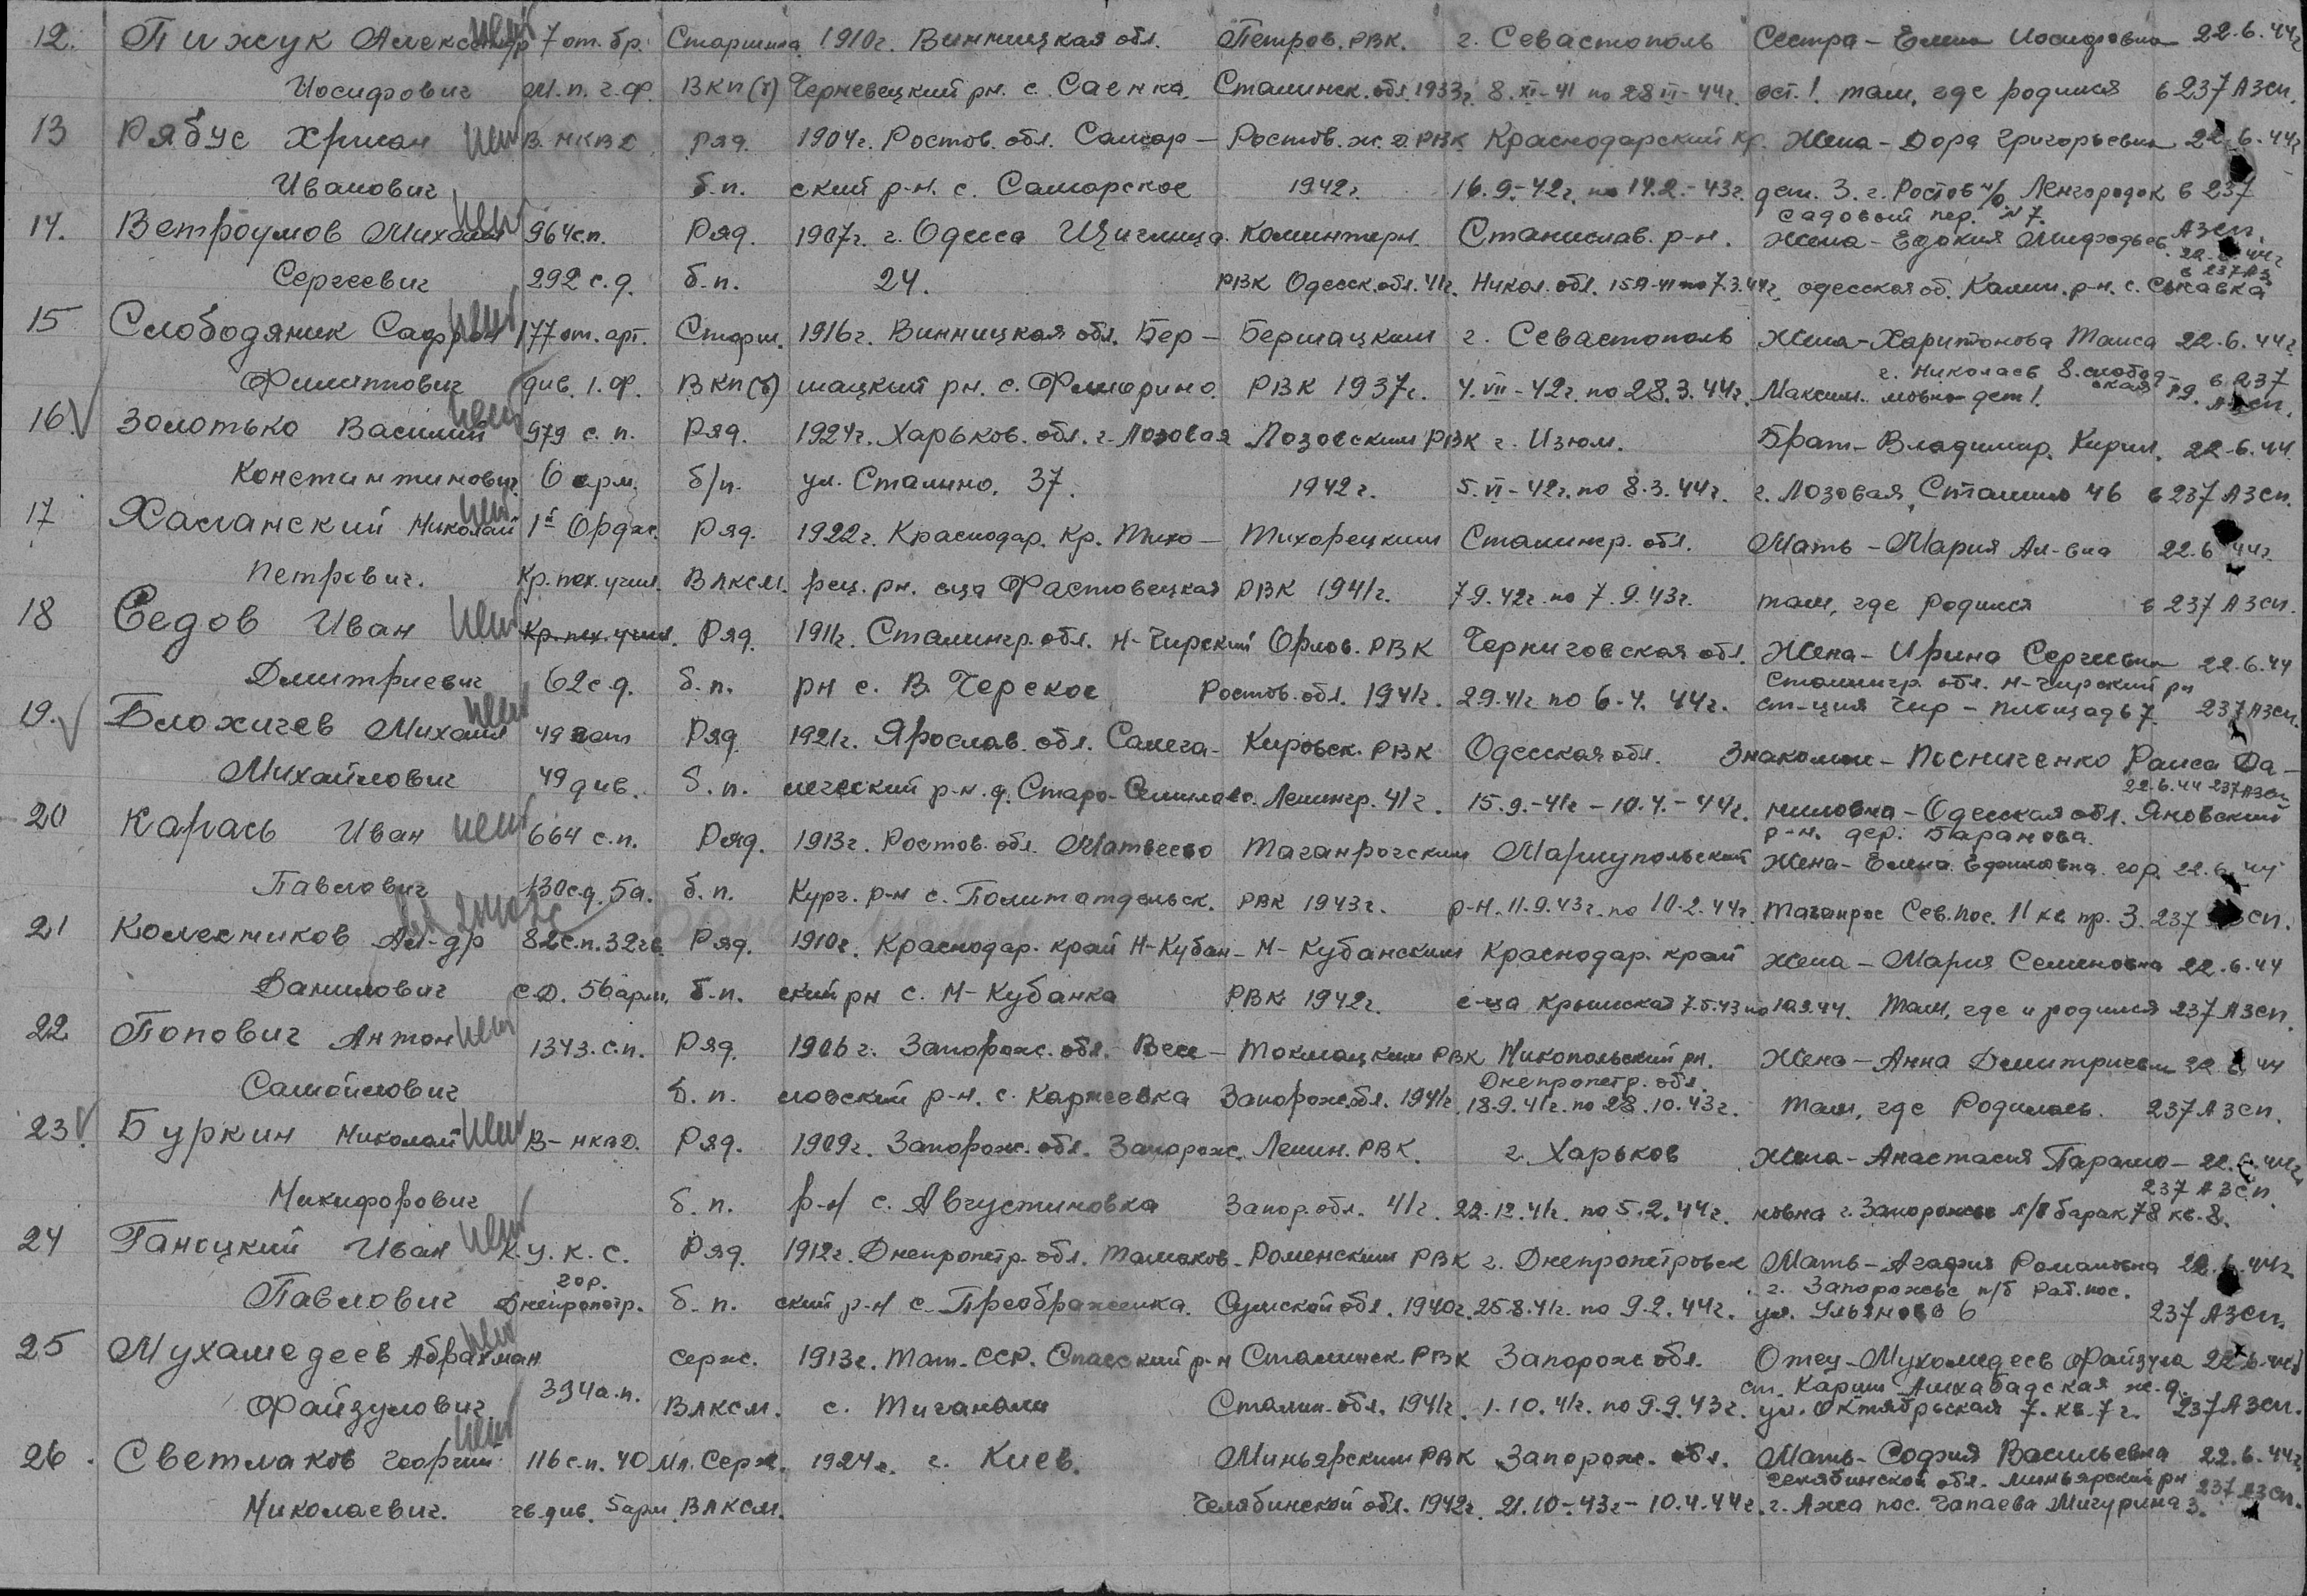 12. Пижук Александр 7 от. бр. Старшина 1910г. Винницкая обл. Петров. РВК. г. Севастополь Сестра – Елена Иосифовна 22.6.44г
Иосифович м.п. г.ф. ВКП(б) Черневецкий рн. с. Саенка. Сталинск. обл. 1933г. 8.XI-41 по 28 III-44г. ост.! там, где родился в 237 АЗСП.
13 Рябус Хриман В. НКВД Ряд. 1904г. Ростов. обл. Самар– Ростов. ж.д. РВК Краснодарский кр. Жена – Дора Григорьевна 22.6.44г
Иванович б.п. ский р-н. с. Самарское 1942г. 16.9.-42г. по 14.2.-43г. дет. 3. г. Ростов н/Д Ленгородок в 237
Садовый пер. №7. АЗСП.
14. Ветроумов Михаил 964 с.п. Ряд. 1907г. г. Одесса Коминтерн. Станислав. р-н. Жена – Едокия 22.6.44г
Сергеевич 292 с.д. б.п. 24. РВК Одесск. обл. 41г. Никол. обл. 15.9-41 по 7.3.44г. одесская об. Комин. р-н. с. в 237 АЗ
15 Слободяник Сафрон 177 от. арт. Старш. 1916г. Винницкая обл. Бер– Бершацким г. Севастополь Жена – Харитонова Таиса 22.6.44г
г. Николаев 8. слобод–ская
Филиппович див. 1. ф. ВКП(б) шацкий рн. с. Флорино. РВК 1937г. 4.VII-42г. по 28.3.44г. Максим. мовна дет 1. в 237 АЗСП.
16. Золотько Василий 979 с.п. Ряд. 1924г. Харьков. обл. г. Лозовая Лозовским РВК г. Изюм. Брат – Владимир. Кирил. 22.6.44
Константинович 6 арм. б/п. ул. Сталино. 37. 1942г. 5.VI-42г. по 8.3.44г. г. Лозовая, Сталино 46 в 237 АЗСП.
17 Хаманский Николай 1й Ордж. Ряд. 1922г. Краснодар. Кр. Тихо– Тихорецким Сталингр. обл. Мать – Мария Ал-вна 22.6.44г.
Петрович. Кр. пех. учил. ВЛКСМ. рец. рн. сца Фастовецкая РВК 1941г. 7.9.42г. по 7.9.43г. там, где родился в 237 АЗСП.
18 Седов Иван Кр. пех. учил. Ряд. 1911г. Сталингр. обл. Н-Чирский Орлов. РВК Черниговская обл. Жена – Ирина Сергеевна 22.6.44
Сталингр. обл. Н-Чирский рн
Дмитриевич 62 с.д. б.п. рн с. В. Черское Ростов. обл. 1941г. 2.9.41г по 6.4.44г. ст-ция Чир – площадь 7. 237 АЗСП.
19. Бложичев Михаил 49 Ряд. 1921г. Ярослав. обл. Кировск. РВК Одесская обл. Знакомая – Посниченко Раиса Да–
22.6.44 237 АЗСП
Михайлович 49 див. б.п. р-н. д. Старо- Ленингр. 41г. 15.9.-41г – 10.4.-44г. ниловна – Одесская обл. Яновский
р-н. дер. Баранова.
20 Карась Иван 664 с.п. Ряд. 1913г. Ростов. обл. Матвеево Таганрогским Мариупольский Жена – Елена гор. 22.6.44
Павлович 130 с.д. 5а. б.п. Кург. р-н с. Политотдельск. РВК 1943г. р-н. 11.9.43г. по 10.2.44г. Таганрог Сев. пос. 11 кв пр. 3. 237 АЗСП.
21 Колесников Ал-др 82 с.п. 32 гв. Ряд. 1910г. Краснодар. край Н-Кубан– Н-Кубанским Краснодар. край Жена – Мария Семеновна 22.6.44
Данилович с.д. 56 арм. б.п. ский рн с. Н-Кубанка РВК 1942г. с-ца Крымская 7.5.43 по Там, где и родился 237 АЗСП.
22 Попович Антон 1343. с.п. Ряд. 1906г. Запорож. обл. Весе– Токмацким РВК Никопольский рн. Жена – Анна Дмитриевн 22.6.44
Днепропетр. обл.
Самойлович б.п. ловский р-н. с. Запорож. обл. 1941г. 18.9.41г. по 28.10.43г. Там, где Родилась. 237 АЗСП.
23. Буркин Николай В-НКВД. Ряд. 1909г. Запорож. обл. Запорож. Ленин. РВК. г. Харьков Жена – Анастасия Парамо– 22.6.44г
237 АЗСП.
Никифорович б.п. р-н с. Августиновка Запор. обл. 41г. 22.12.41г. по 5.2.44г. новна г. Запорожье п/я барак 78 кв. 8.
24 Ганоцкий Иван К.У.К.С. Ряд. 1912г. Днепропетр. обл. Томаков– Роменским РВК г. Днепропетровск Мать – Агафия Романовна 22.6.44г
гор. г. Запорожье п/б Раб. пос.
Павлович Днепропетр. б.п. ский р-н с. Преображенка. Сумской обл. 1940г. 25.8.41г. по 9.2.44г. ул. Ульянова 6 237 АЗСП.
25 Мухамедеев Абрахман серж. 1913г. Тат. ССР. Спасский р-н Сталинск. РВК Запорож обл. Отец – Мухомедеев Файзула 22.6.44г
394 а.п. ст. Каршы Ашхабадская ж.д.
Файзулович ВЛКСМ. с. Тигонали Сталин. обл. 1941г. 1.10.41г. по 9.9.43г. ул. Октябрьская 7. кв. 7г. 237 АЗСП.
26. Светлаков Георгий 116 с.п. 40 Мл. Серж. 1924г. г. Киев. Миньярским РВК Запорож. обл. Мать – София Васильевна 22.6.44г
Челябинской обл. Миньярский рн 237 АЗСП.
Николаевич. гв. див. 5 арм. ВЛКСМ. Челябинской обл. 1942г. 21.10-43г – 10.4.44г. г. Аша пос. Чапаева Мичурина 3.